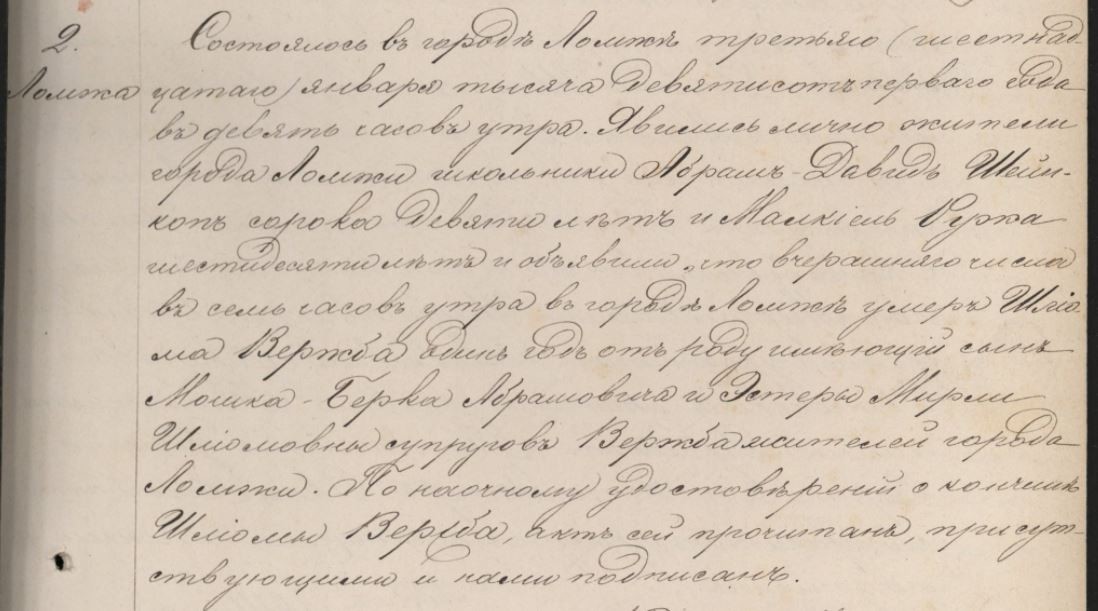 2. Состоялось въ городѣ Ломжѣ третьяго (шестнад-
Ломжа цатаго) января тысяча девятисотъ перваго года
въ девять часовъ утра. Явились лично жители
города Ломжи школьники Абрамъ-Давидъ Шейн-
копъ сорока девяти лѣтъ и Малкіель Ружа
шестидесяти лѣтъ и объявили, что вчерашняго числа
въ семь часовъ утра въ городѣ Ломжѣ умеръ Шлiо-
ма Вержба одинъ годъ отъ роду имѣющій сынъ
Мошка-Берка Абрамовича и Эстеры Мирли
Шліомовны супруговъ Вержба жителей города
Ломжи. По наочному удостовѣреніи о кончинѣ
Шліомы Вержба, актъ сей прочитанъ, присут-
ствующими и нами подписанъ.